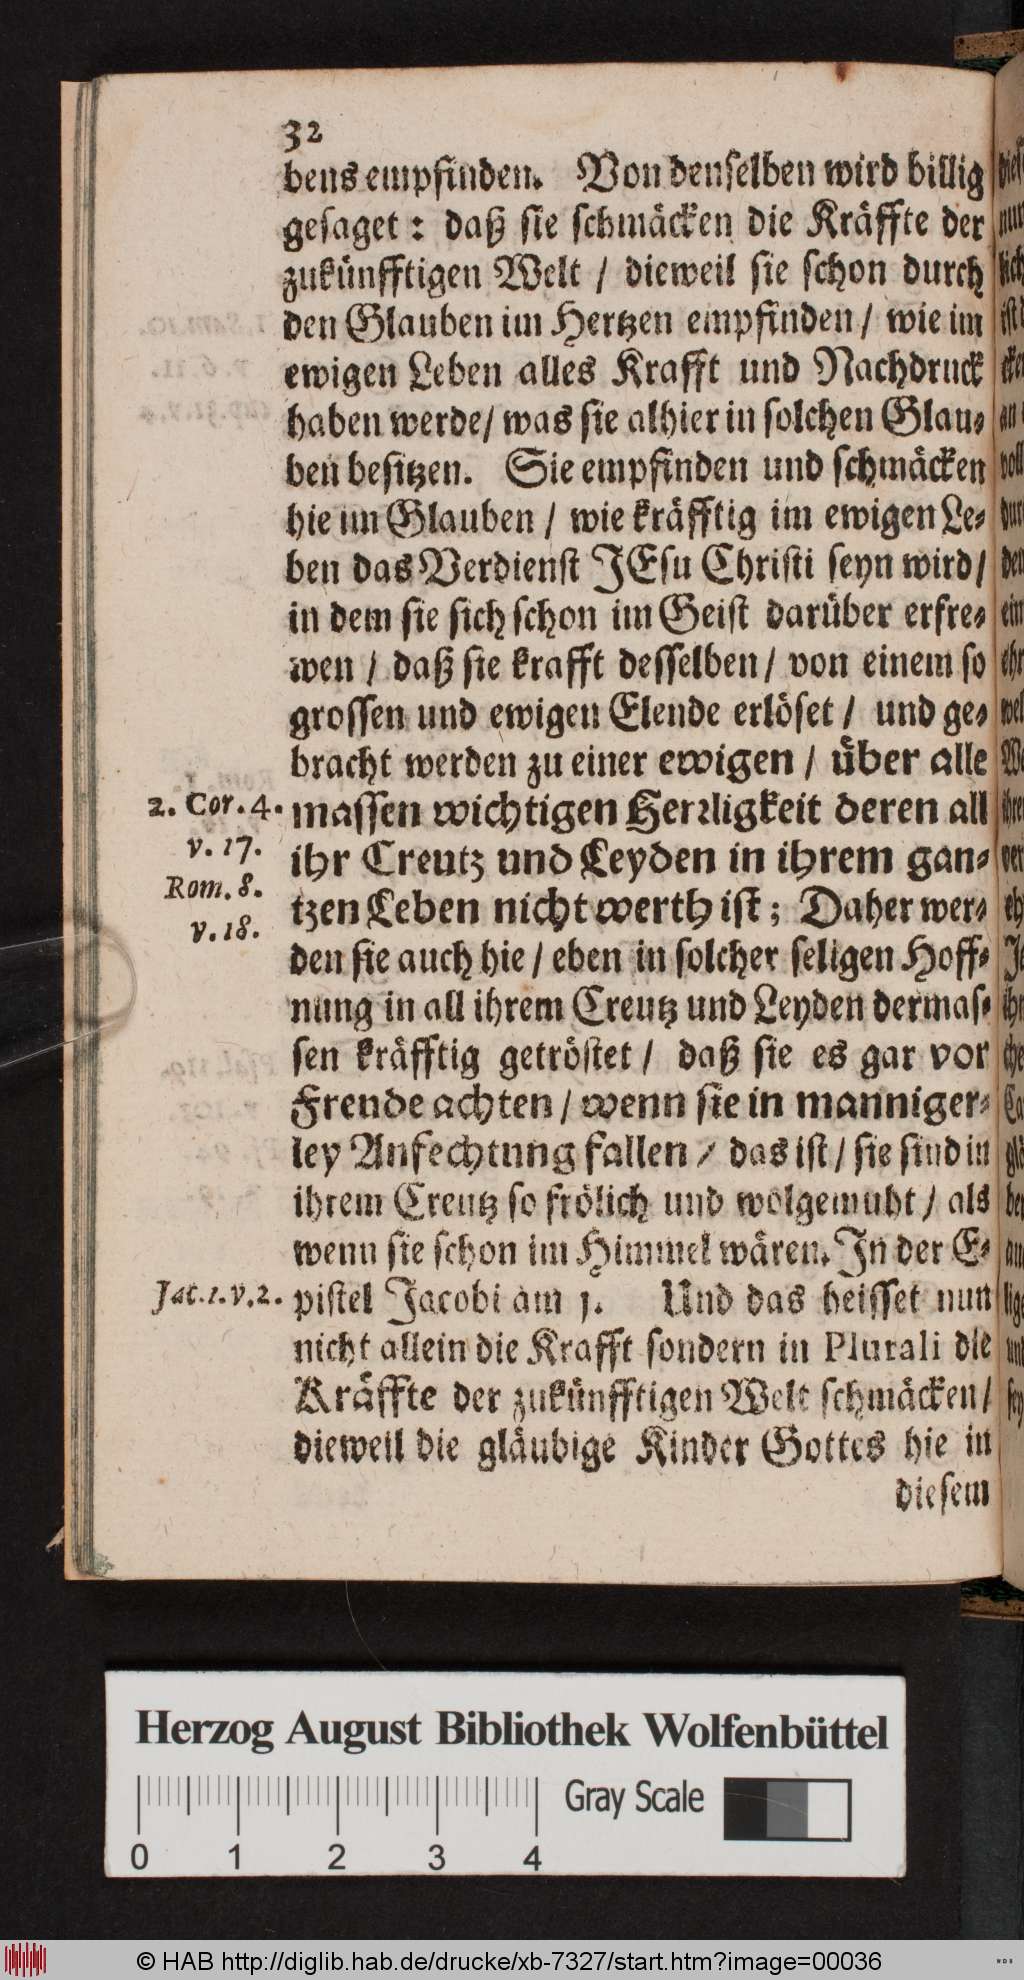 32
bens empfinden. Von denselben wird billig
gesaget: daß sie schmäcken die Kräffte der
zukünfftigen Welt / dieweil sie schon durch
den Glauben im Hertzen empfinden / wie im
ewigen Leben alles Krafft und Nachdruck
haben werde / was sie alhier in solchen Glau-
ben besitzen. Sie empfinden und schmäcken
hie im Glauben / wie kräfftig im ewigen Le-
ben das Verdienst JEsu Christi seyn wird /
in dem sie sich schon im Geist darüber erfre-
wen / daß sie krafft desselben / von einem so
grossen und ewigen Elende erlöset / und ge-
bracht werden zu einer ewigen / über alle
2. Cor. 4. massen wichtigen Herrligkeit deren all
v. 17. ihr Creutz und Leyden in ihrem gan-
Rom. 8. tzen Leben nicht werth ist; Daher wer-
v. 18. den sie auch hie / eben in solcher seligen Hoff-
nung in all ihrem Creutz und Leyden dermas-
sen kräfftig getröstet / daß sie es gar vor
Freude achten / wenn sie in manniger-
ley Anfechtung fallen / das ist / sie sind in
ihrem Creutz so frölich und wolgemuht / als
wenn sie schon im Himmel wären. In der E-
Jac. 1. v. 2. pistel Jacobi am 1. Und das heisset nun
nicht allein die Krafft sondern in Plurali die
Kräffte der zukünfftigen Welt schmäcken /
dieweil die gläubige Kinder Gottes hie in
diesem
Herzog August Bibliothek Wolfenbüttel
Gray Scale
0 1 2 3 4
© HAB http://diglib.hab.de/drucke/xb-7327/start.htm?image=00036